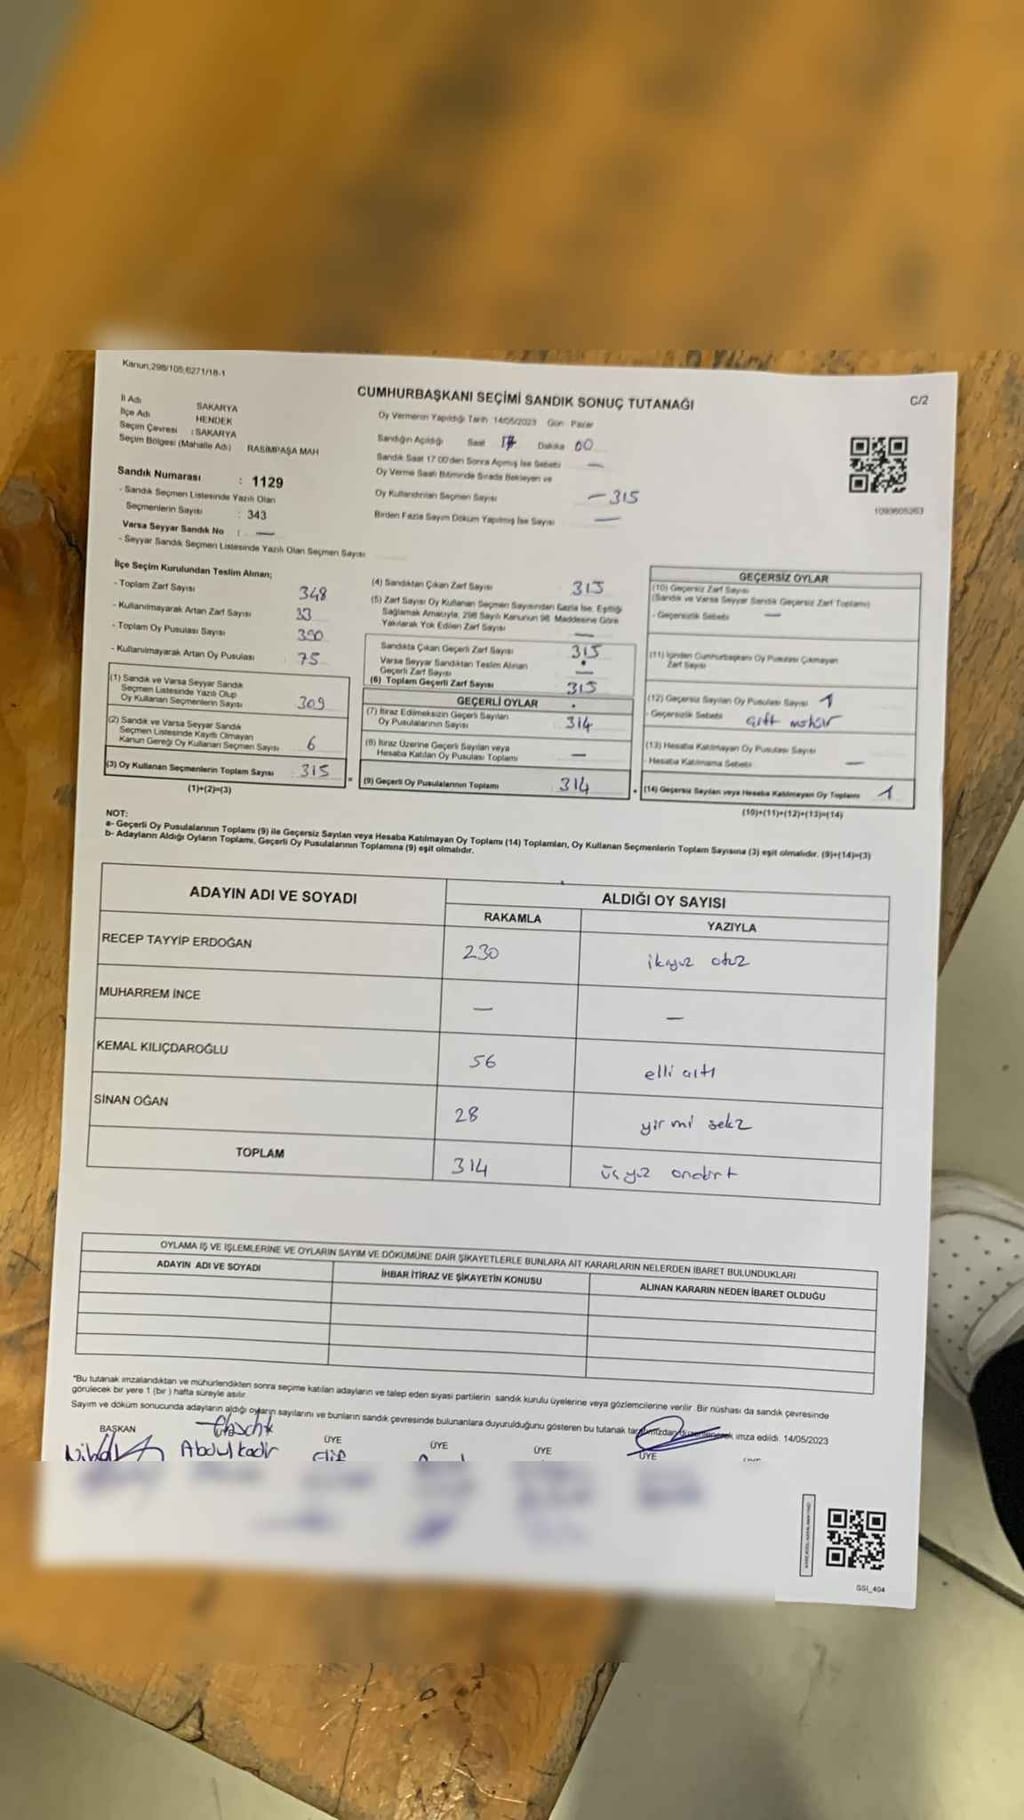 Kanun;298/105;6271/18-1
C/2
CUMHURBAŞKANI SEÇİMİ SANDIK SONUÇ TUTANAĞI
İl Adı SAKARYA
İlçe Adı HENDEK
Seçim Çevresi : SAKARYA
Seçim Bölgesi (Mahalle Adı) RASİMPAŞA MAH
Sandık Numarası : 1129
- Sandık Seçmen Listesinde Yazılı Olan
Seçmenlerin Sayısı : 343
Varsa Seyyar Sandık No : —
- Seyyar Sandık Seçmen Listesinde Yazılı Olan Seçmen Sayısı
Oy Vermenin Yapıldığı Tarih 14/05/2023 Gün Pazar
Sandığın Açıldığı Saat 17 Dakika 00
Sandık Saat 17:00'den Sonra Açılmış İse Sebebi —
Oy Verme Saati Bitiminde Sırada Bekleyen ve
Oy Kullandırılan Seçmen Sayısı — 315
Birden Fazla Sayım Döküm Yapılmış İse Sayısı —
1093605263
İlçe Seçim Kurulundan Teslim Alınan;
- Toplam Zarf Sayısı 348
- Kullanılmayarak Artan Zarf Sayısı 33
- Toplam Oy Pusulası Sayısı 390
- Kullanılmayarak Artan Oy Pusulası 75
(1) Sandık ve Varsa Seyyar Sandık
Seçmen Listesinde Yazılı Olup
Oy Kullanan Seçmenlerin Sayısı 309
(2) Sandık ve Varsa Seyyar Sandık
Seçmen Listesinde Kayıtlı Olmayan
Kanun Gereği Oy Kullanan Seçmen Sayısı 6
(3) Oy Kullanan Seçmenlerin Toplam Sayısı 315
(1)+(2)=(3)
(4) Sandıktan Çıkan Zarf Sayısı 315
(5) Zarf Sayısı Oy Kullanan Seçmen Sayısından Fazla İse, Eşitliği
Sağlamak Amacıyla, 298 Sayılı Kanunun 98. Maddesine Göre
Yakılarak Yok Edilen Zarf Sayısı —
Sandıkta Çıkan Geçerli Zarf Sayısı 315
Varsa Seyyar Sandıktan Teslim Alınan
Geçerli Zarf Sayısı —
(6) Toplam Geçerli Zarf Sayısı 315
GEÇERLİ OYLAR
(7) İtiraz Edilmeksizin Geçerli Sayılan
Oy Pusulalarının Sayısı 314
(8) İtiraz Üzerine Geçerli Sayılan veya
Hesaba Katılan Oy Pusulası Toplamı —
(9) Geçerli Oy Pusulalarının Toplamı 314
GEÇERSİZ OYLAR
(10) Geçersiz Zarf Sayısı
(Sandık ve Varsa Seyyar Sandık Geçersiz Zarf Toplamı)
- Geçersizlik Sebebi —
(11) İçinden Cumhurbaşkanı Oy Pusulası Çıkmayan
Zarf Sayısı
(12) Geçersiz Sayılan Oy Pusulası Sayısı 1
- Geçersizlik Sebebi Çift mühür
(13) Hesaba Katılmayan Oy Pusulası Sayısı
- Hesaba Katılmama Sebebi —
(14) Geçersiz Sayılan veya Hesaba Katılmayan Oy Toplamı 1
(10)+(11)+(12)+(13)=(14)
NOT:
a- Geçerli Oy Pusulalarının Toplamı (9) ile Geçersiz Sayılan veya Hesaba Katılmayan Oy Toplamı (14) Toplamları, Oy Kullanan Seçmenlerin Toplam Sayısına (3) eşit olmalıdır. (9)+(14)=(3)
b- Adayların Aldığı Oyların Toplamı, Geçerli Oy Pusulalarının Toplamına (9) eşit olmalıdır.
ADAYIN ADI VE SOYADI ALDIĞI OY SAYISI
RAKAMLA YAZIYLA
RECEP TAYYİP ERDOĞAN 230 ikiyüz otuz
MUHARREM İNCE — —
KEMAL KILIÇDAROĞLU 56 elli altı
SİNAN OĞAN 28 yirmi sekz
TOPLAM 314 üçyüz ondört
OYLAMA İŞ VE İŞLEMLERİNE VE OYLARIN SAYIM VE DÖKÜMÜNE DAİR ŞİKAYETLERLE BUNLARA AİT KARARLARIN NELERDEN İBARET BULUNDUKLARI
ADAYIN ADI VE SOYADI İHBAR İTİRAZ VE ŞİKAYETİN KONUSU ALINAN KARARIN NEDEN İBARET OLDUĞU
"Bu tutanak imzalandıktan ve mühürlendikten sonra seçime katılan adayların ve talep eden siyasi partilerin sandık kurulu üyelerine veya gözlemcilerine verilir. Bir nüshası da sandık çevresinde
görülecek bir yere 1 (bir) hafta süreyle asılır.
Sayım ve döküm sonucunda adayların aldığı oyların sayılarını ve bunların sandık çevresinde bulunanlara duyurulduğunu gösteren bu tutanak imza edildi. 14/05/2023
BAŞKAN ÜYE ÜYE ÜYE ÜYE
Abdulkadir Elif
GSI_404